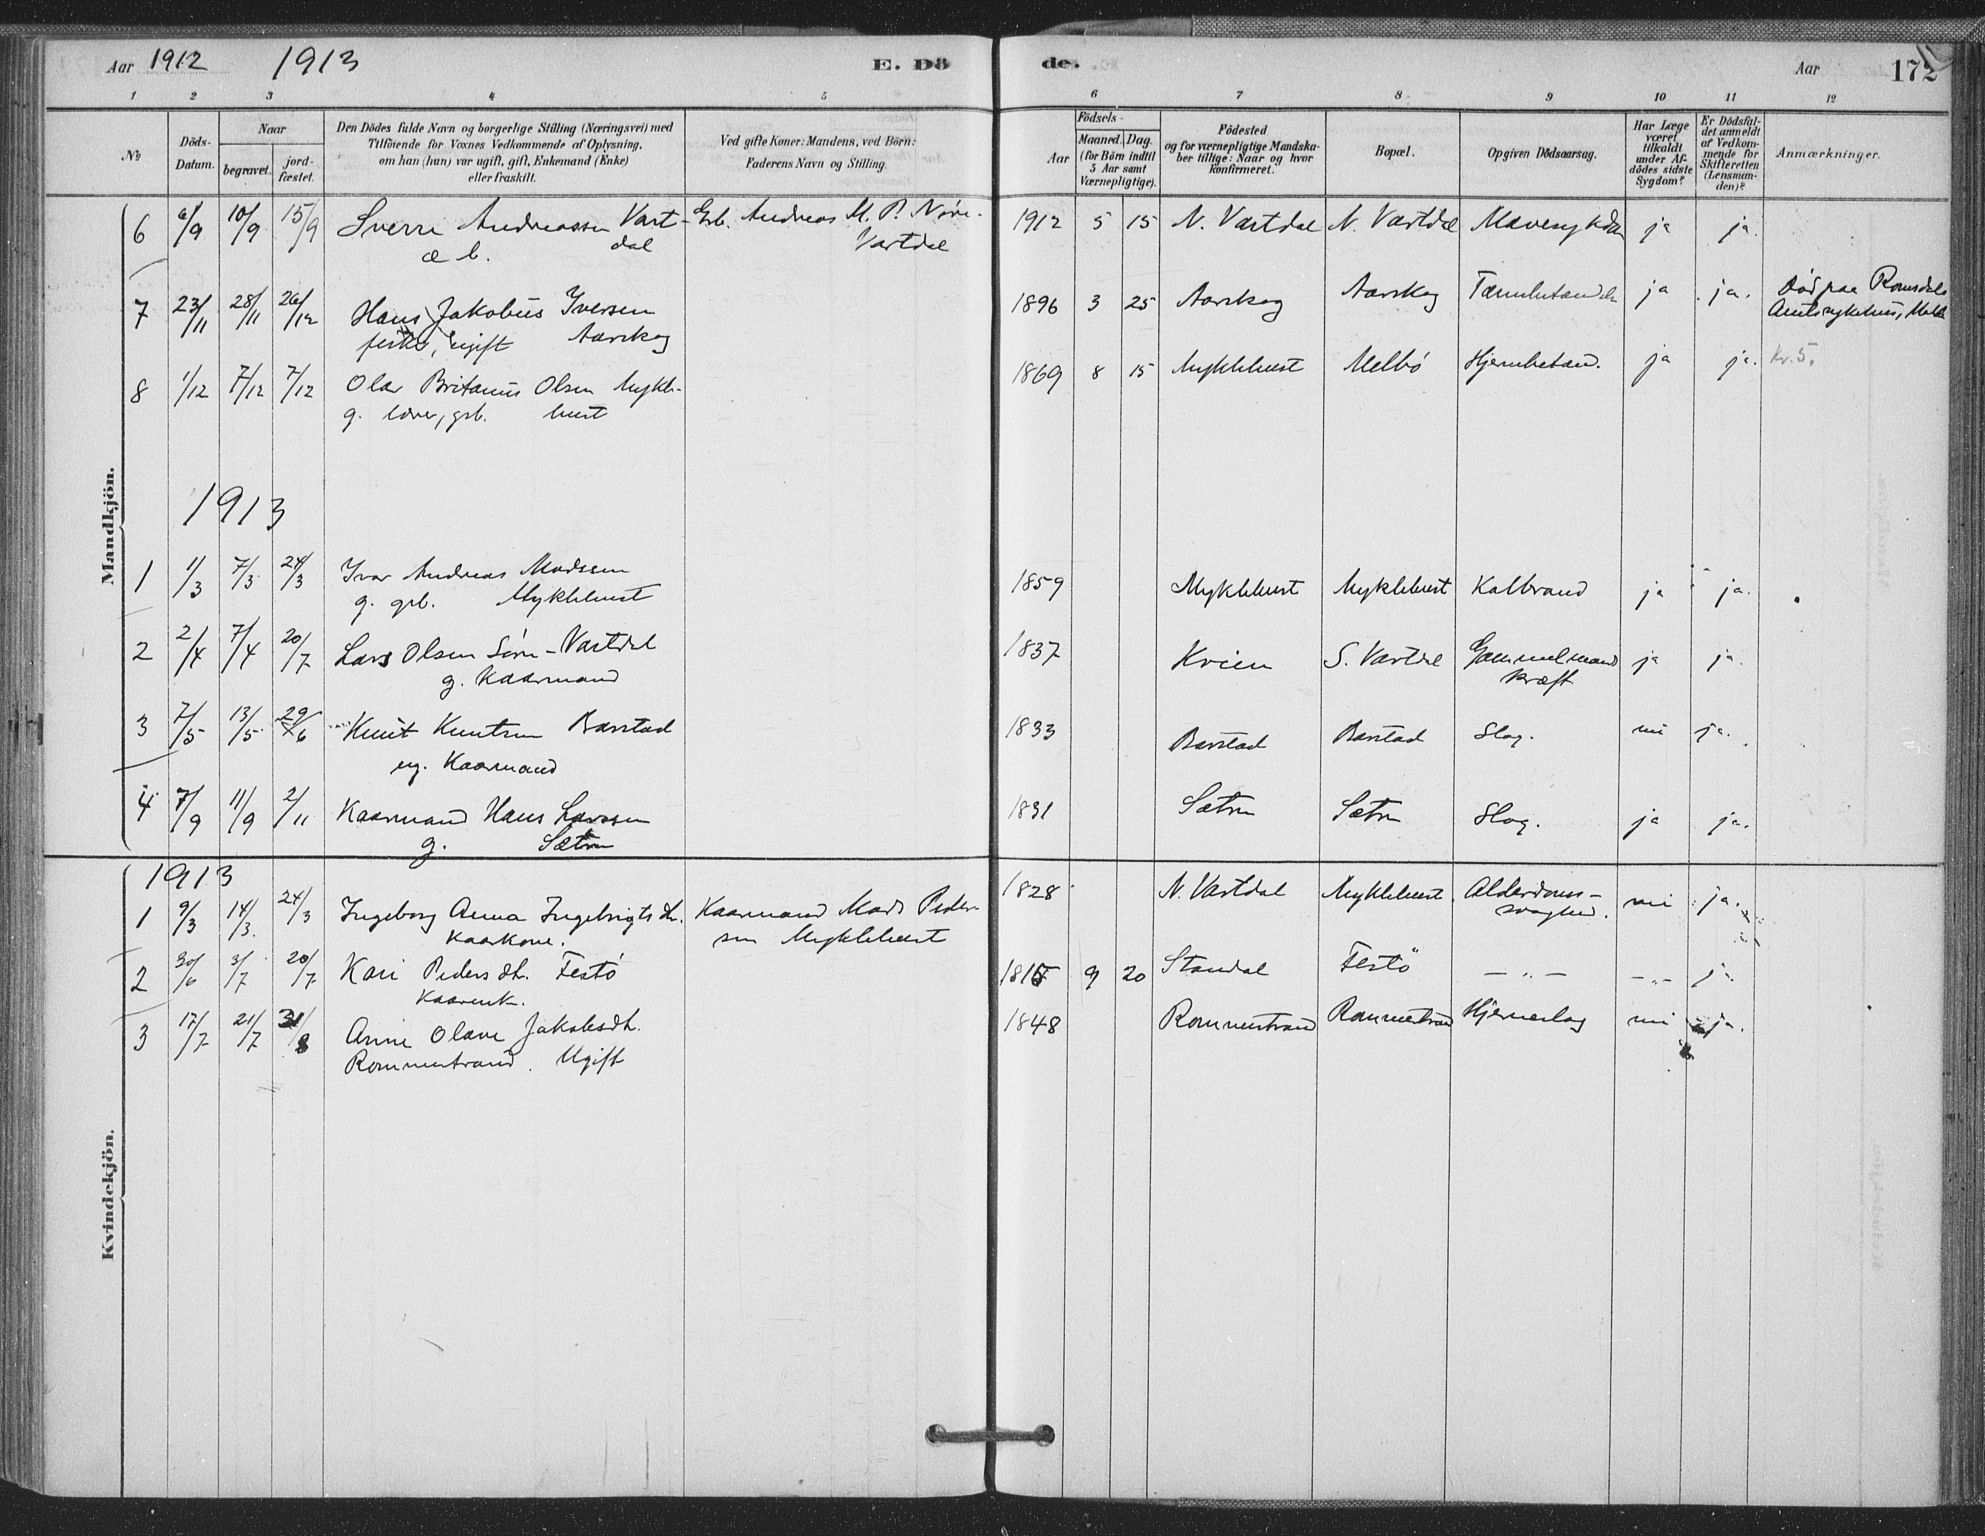 Aar 1912 1913 E. Dö
1 2 3 4 5
№ Döds-Datum. Naar begravet. jord-fæstet.
Den Dödes fulde Navn og borgerlige Stilling (Næringsvei) med
Tilföiende for Voxnes Vedkommende af Oplysning,
om han (hun) var ugift, gift, Enkemand (Enke)
eller fraskilt.
Ved gifte Koner: Mandens, ved Börn:
Faderens Navn og Stilling.
Mandkjön.
6 6/9 10/9 15/9 Sverre Andreassen Vart- Grb. Andreas M. P. Nøre-
æ b. dal Vartdal
7 23/11 28/11 26/12 Hans Jakobus Iversen
fisker, ugift Aarskog
8 1/12 7/12 7/12 Olav Britanus Olsen Mykle-
g. lærer, grb. bust
1913
1 1/3 7/3 24/3 Ivar Andreas Madssen
g. grb. Myklebust
2 2/4 7/4 20/7 Lars Olsen Søre-Vartdal
g. Kaarmand
3 7/5 13/5 29/6 Knut Knutsen Barstad
ug. Kaarmand
4 7/9 11/9 2/11 Kaarmand Hans Larssen
g. Sætre
Kvindekjön.
1913
1 9/3 14/3 24/3 Ingeborg Anna Ingebrigtsdt. Kaarmand Mads Peder-
Kaarkone. sen Myklebust
2 30/6 3/7 20/7 Kari Pedersdt. Festö
Kaarenk.
3 17/7 21/7 31/8 Anne Olave Jakobsdt.
Rommestrand. Ugift
de. Aar 172
6 7 8 9 10 11 12
Födsels-
Aar Maaned. Dag.
(for Börn indtil
5 Aar samt
Værnepligtige).
Födested
og for værnepligtige Mandska-
ber tillige: Naar og hvor
konfirmeret.
Bopæl.
Opgiven Dödsaarsag.
Har Læge
været
tilkaldt
under Af-
dödes sidste
Sygdom?
Er Dödsfal-
det anmeldt
af Vedkom-
mende for
Skifteretten
(Lensman-
den)?
Anmærkninger.
1912 5 15 N. Vartdal N. Vartdal Mavesykdom ja ja.
1896 3 25 Aarskog Aarskog ja ja. Død paa Romsdals
Amtssykehus, Molde
1869 8 15 Myklebust Melbö Hjernebetænd. ja ja. Kr. 5.
1859 Myklebust Myklebust Kalbrand ja ja.
1837 Kvien S. Vartdal Gammelmand ja ja.
kræft
1833 Barstad Barstad Slag. nei ja.
1831 Sætre Sætre Slag. ja ja.
1828 N. Vartdal Myklebust Alderdoms- nei ja.
svaghed.
9 20 Standal Festö — „ — — „ — ja.
1848 Rommestrand Rommestrand Hjerneslag nei ja.